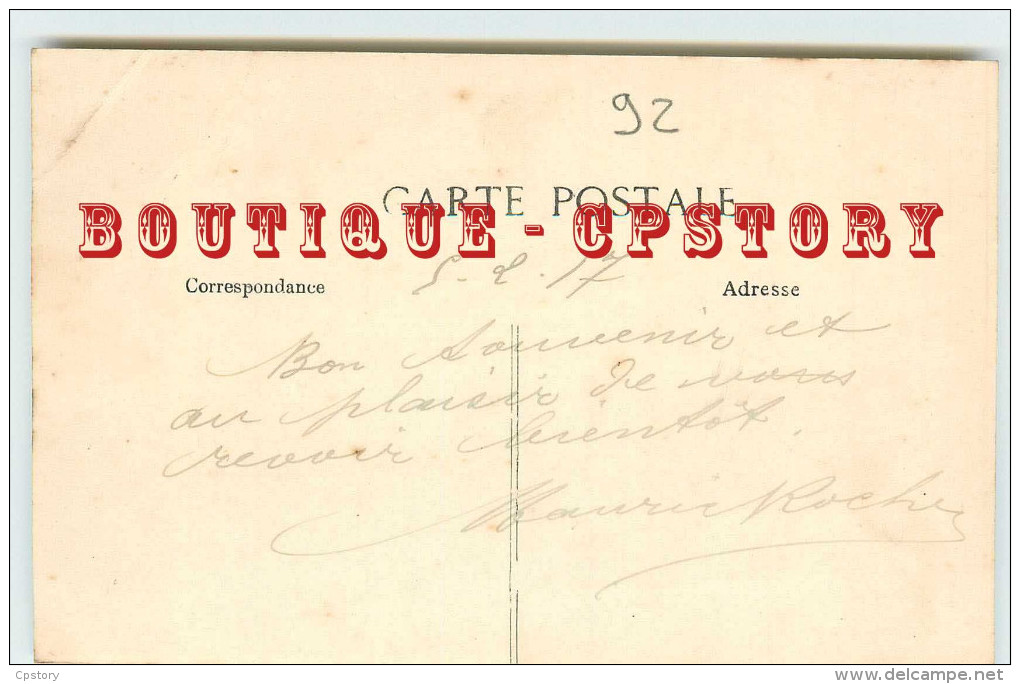 92
CARTE POSTALE
BOUTIQUE - CPSTORY
5-2-17
Correspondance
Adresse
Bon souvenir et
au plaisir de vous
revoir bientôt.
Maurice
Cpstory
delcampe.net